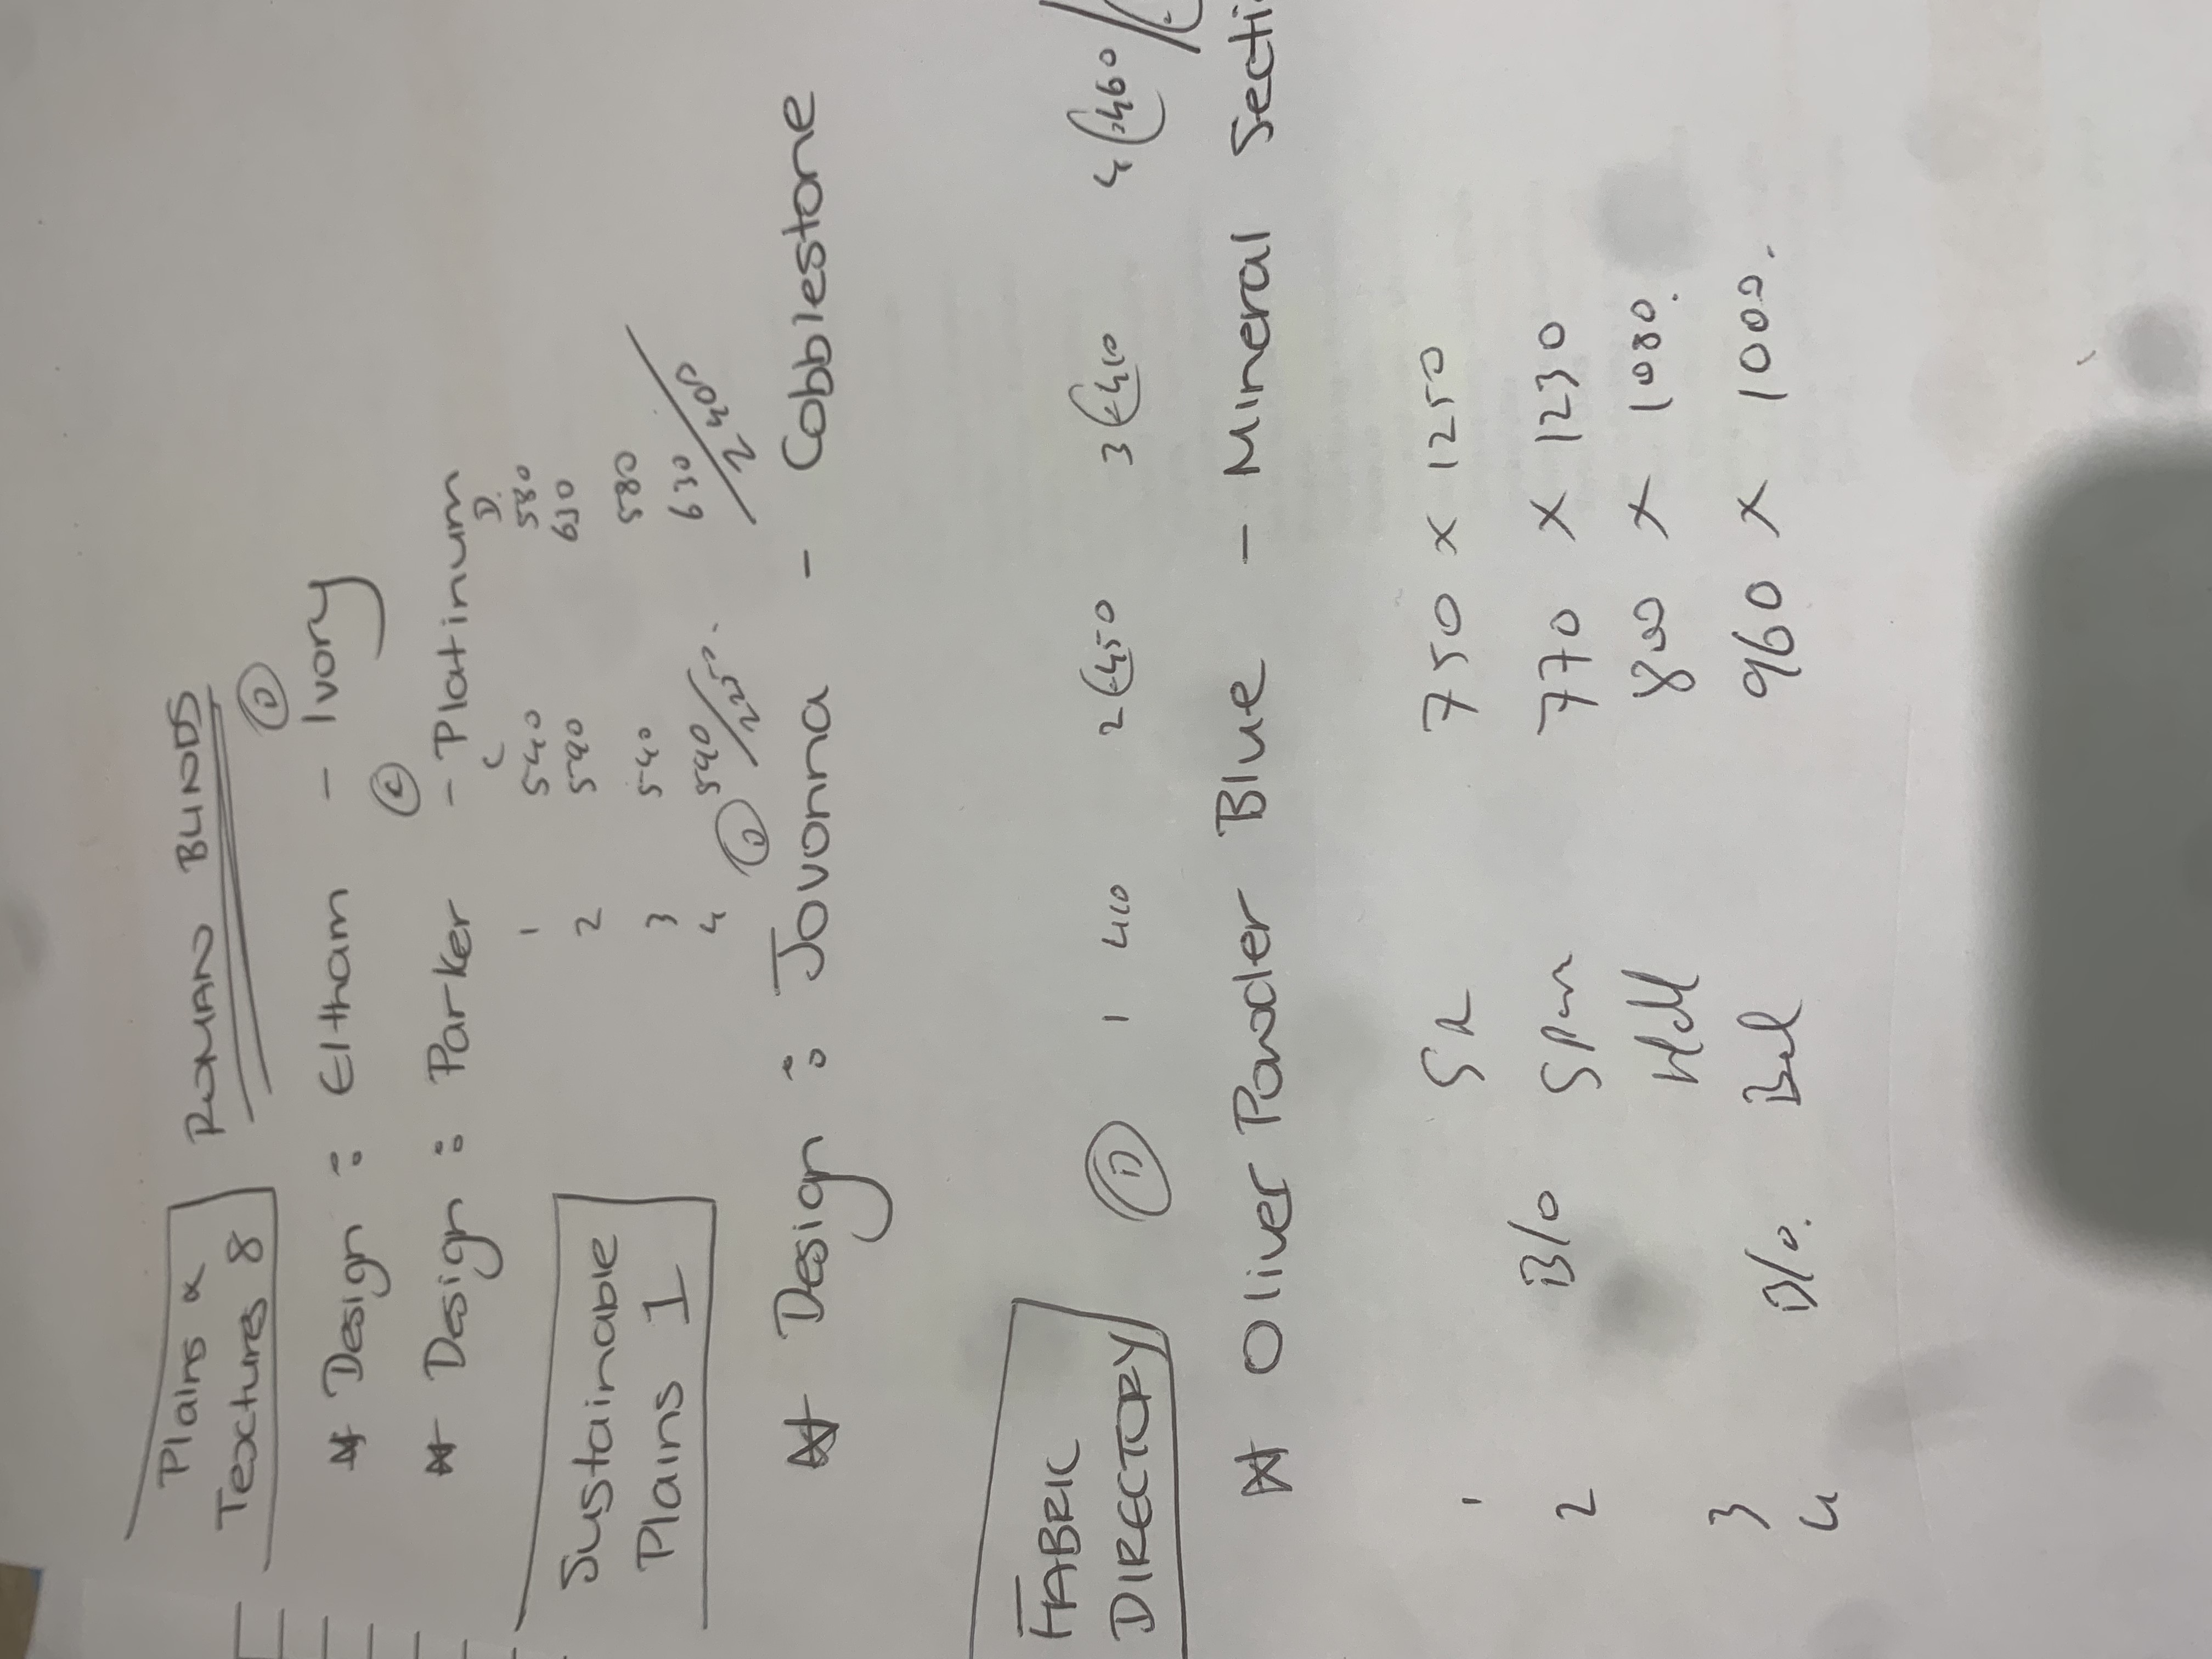 Plains &
Textures 8
ROMAN BLINDS
D
Design : Eltham - Ivory
C
Design : Parker - Platinum
C D.
1 540 580
2 590 630
3 540 580
4 590 630
2250. 2420
Sustainable
Plains 1
D
Design : Jovonna - Cobblestone
FABRIC
DIRECTORY
D 1 410 2 450 3 410 4 460
Oliver Powder Blue - Mineral Secti
1 750 x 1250
2 B/O 770 x 1230
3 800 x 1080.
4 B/O. Bed 960 x 1000.